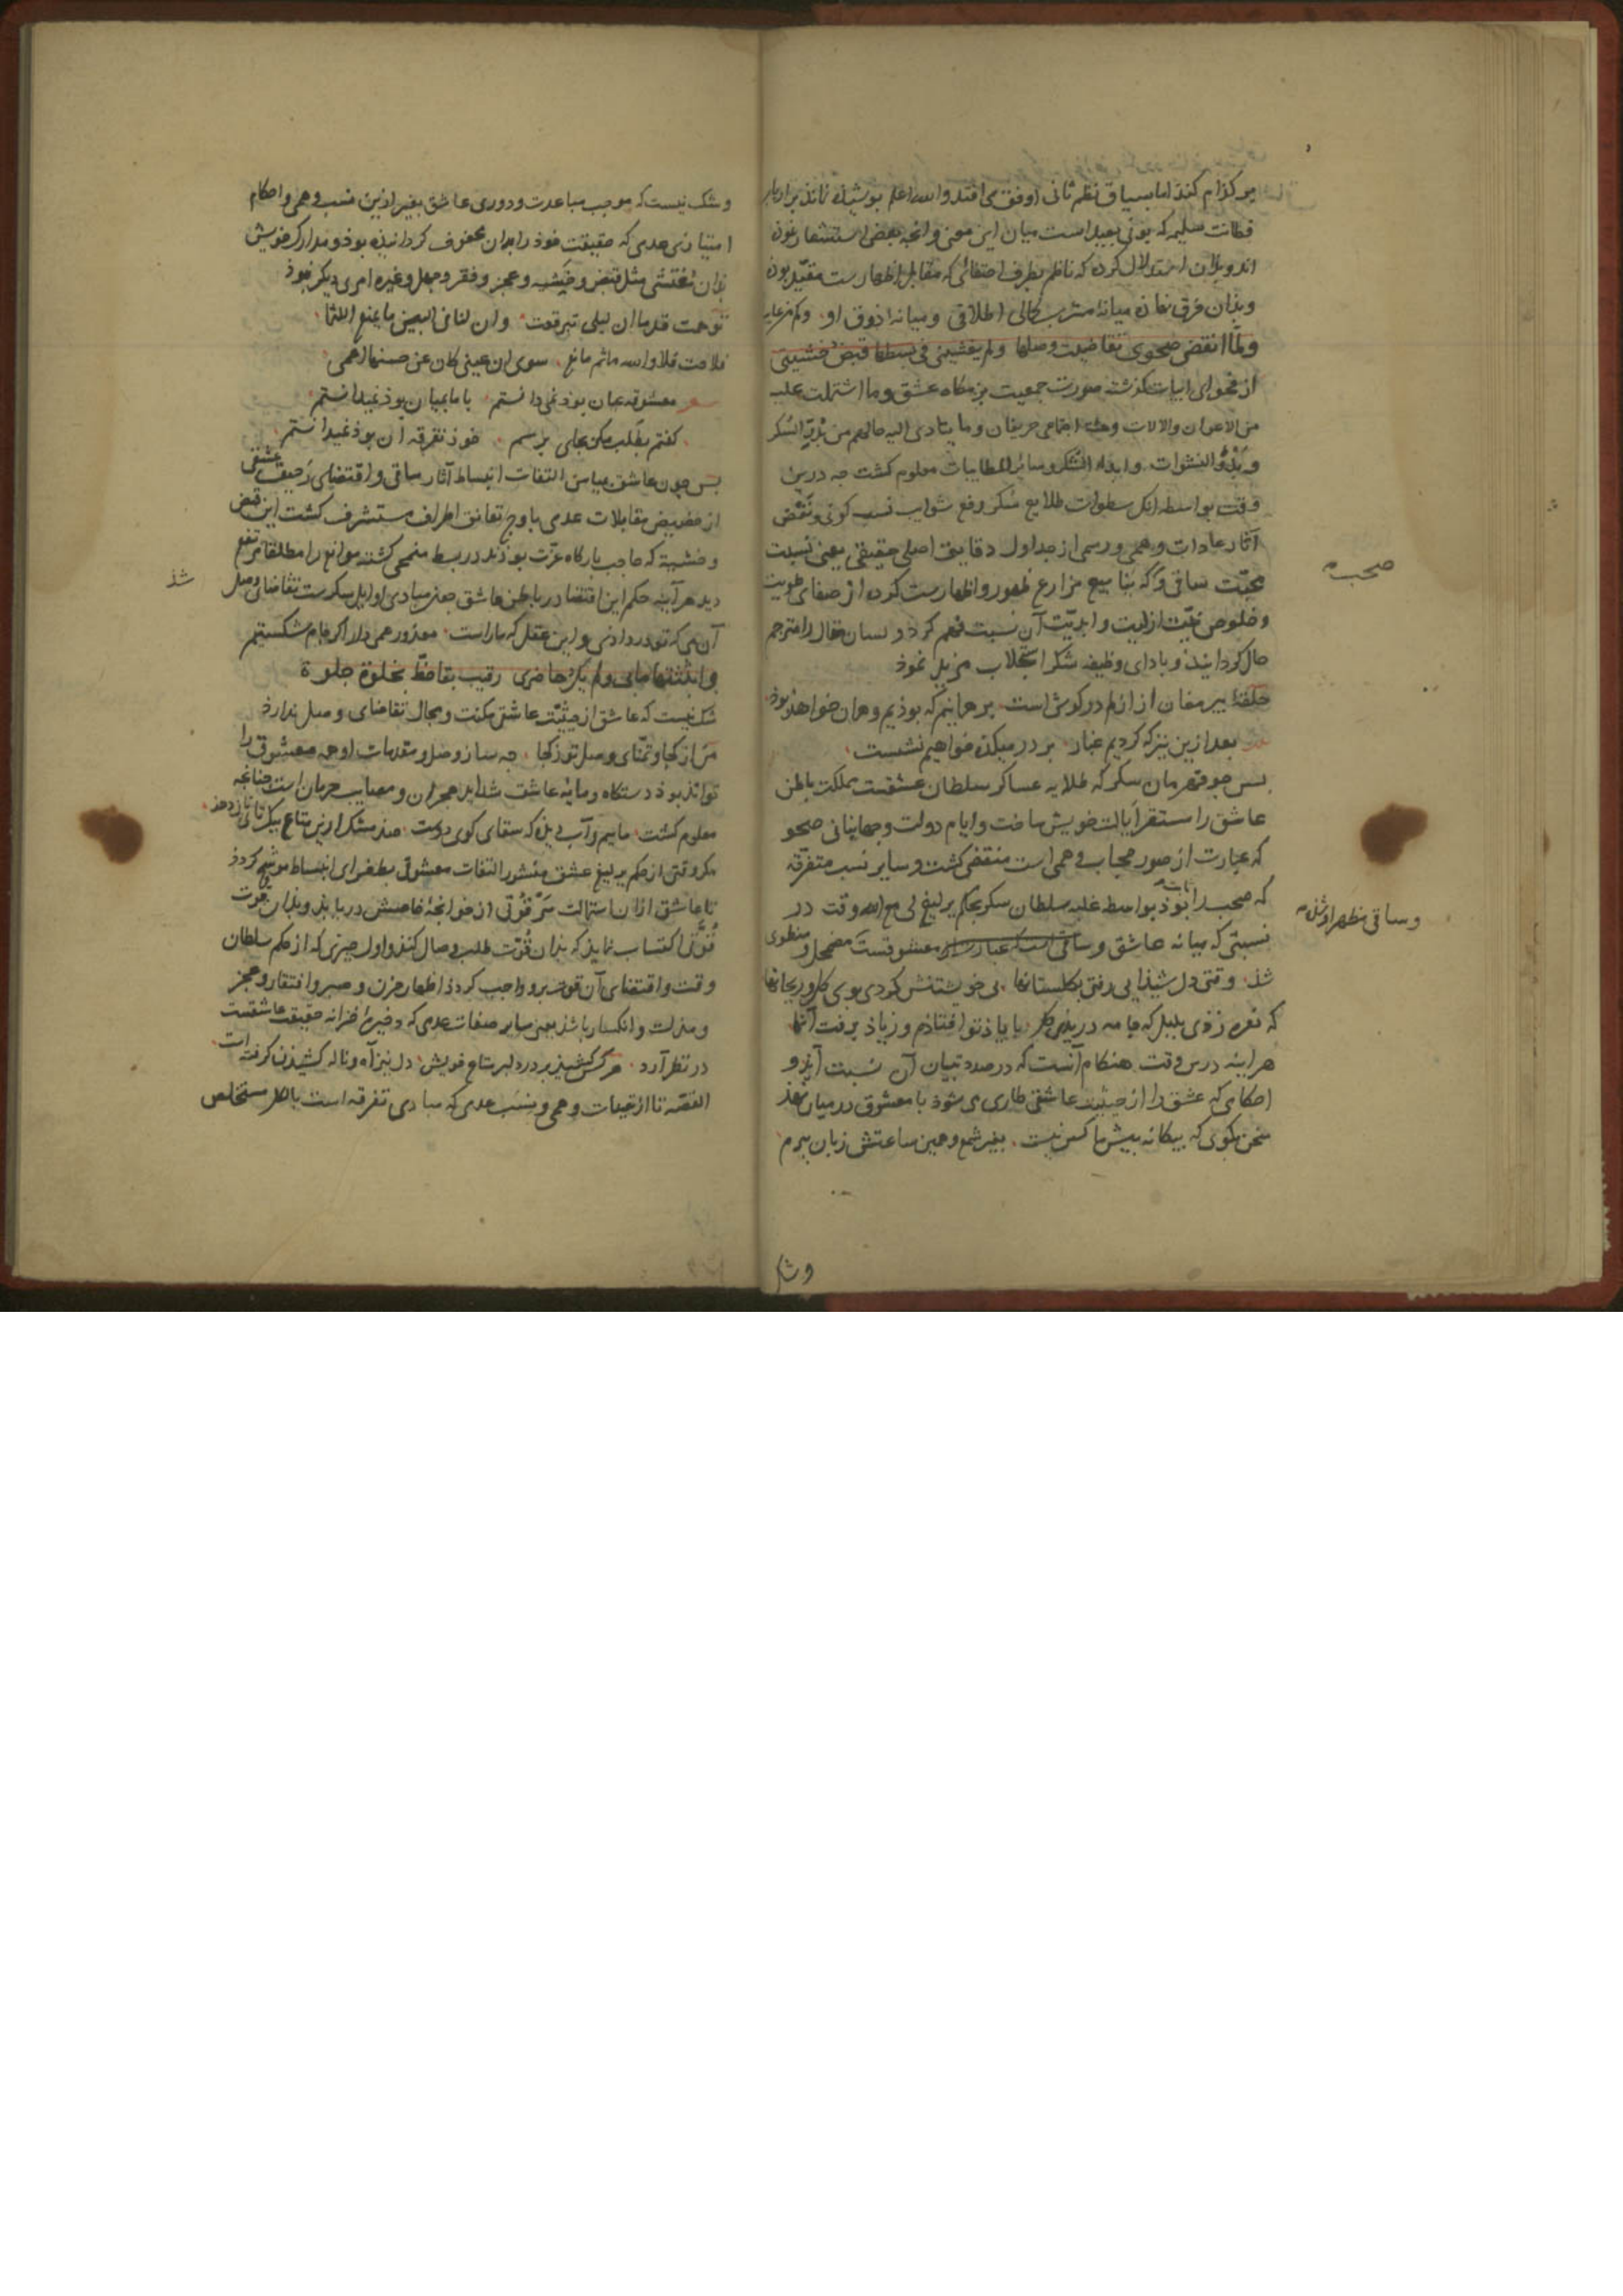 هر کذام کنذ اما بسیاق نظم ثانی اوفق می افتد والله اعلم بوشیذه نمانذ بر ارباب
فطانت سلیمه که بونی بعید است میان این معنی وانچه بعضی استشعار نموده
اند وبذان استدلال کرده که ناظم بطرف اختفائی که مقابل اظهارست مقید بوده
وبذان فرق نهاده میانه مشرب کمالی اطلاقی ومیانه ذوق او
ولما انقضی صحوی تقاضیت وصلها ولم یغشنی فی بسطها قبض خشیتی
از فحوای ابیات گذشته صورت جمعیت بزمگاه عشق وما اشتملت علیه
من الاعوان والالات وهیئه اجتماعی حریفان وما یتادی الیه حالهم من السکر
النشوات وابداء الشکر وسائر المطایبات معلوم کشت جه درین
وقت بواسطه انک سطوات طلایع سکر رفع شوایب نسب کونی ونقض
آثار عادات وهمی ورسمی از جداول دقایق اصلی حقیقی یعنی نسبت
محبت ساقی وکه ینابیع مزارع ظهور واظهارست کرده از صفای طویت
وخلوص نیت ازلیت وابدیت آن نسبت فهم کرد ولسان مقال را مترجم
حال کردانید وبادای وظیفه شکر استجلاب مزید نمود
حلقهٔ پیر مغان از ازلم در کوش است بر همانیم که بوذیم وهمان خواهذ بوذ
بعد ازین نیز که کردیم غبار بر در میکذه خواهیم نشست
بس جو قهرمان سکر که طلایه عساکر سلطان عشقست مملکت باطن
عاشق را مستقر ایالت خویش ساخت وایام دولت وجهانبانی صحو
که عبارت از صور حجاب وهمی است منقضی کشت وسایر نسب متفرقه
که صحبه را بوذ بواسطه غلبه سلطان سکر بحکم یرلیغ لی مع الله وقت در
نسبتی که میانه عاشق وساقی است که عبارت از معشوقست مضمحل و منطوی
شذ وقتی دل شیذایی رفتی بکلستانها بی خویشتنش کردی بوی کل وریحانها
که نعره زذی بلبل که جامه دریذی کل با یاذ تو افتاذم وز یاذ برفت آنها
هر اینه درین وقت هنکام آنست که در صدد تبیان آن نسبت آیذ و
احکامی که عشق را از حیثیت عاشقی طاری می شوذ با معشوق در میان نهذ
سخن بکوی که بیکانه بیش ما کس نیست بغیر شمع وهمین ساعتش زبان ببرم
صحبه
وساقی مظهر او شذه
وشک
وشک نیست که موجب مباعدت ودوری عاشق بغیر ازین نسب وهمی واحکام
امتیازی عدمی که حقیقت خوذ را بدان محفوف کردانیذه بوذ ومدارک خویش
بذان مغتشی مثل قبض وخشیه وعجز وفقر وجهل وغیره امری دیکر نبوذ
توهمت قدما ان لیلی تبرقعت وان لنا فی البین ما یمنع اللثما
فلاحت فلا والله ماثم مانع سوی ان عینی کان عن حسنها اعمی
معشوقه عیان بوذ نمی دانستم با ما بمیان بوذ نمیدانستم
کفتم بطلب مکر بجای برسم خوذ تفرقه آن بوذ نمیدانستم
بس چون عاشق بمیامن التفات انبساط آثار ساقی واقتضای رحیق عشقی
از حضیض مقابلات عدمی باوج تعانق اطراف مستشرف کشت این قبض
وخشیه که حاجب بارکاه عزت بوذند در بسط منمحی کشته موانع را مطلقا مرتفع
دید هر آینه حکم این اقتضا در باطن عاشق یعنی مبادی اوایل سکرست تقاضای وصل
شذ
آن می که تو در دادی واین عقل که ماراست معذور همی دار اکر جام شکستیم
وابثثتها ما بی ولم یک حاضری رقیب بقا حظ بخلوة جلوة
شک نیست که عاشق از حیثیت عاشقی مکنت ومجال تقاضای وصل ندارد
من از کجا وتمنای وصل تو ز کجا جه ساز وصل ومقدمات او جه معشوق را
توانذ بوذ دستکاه ومایه عاشق شداید هجران ومصایب حرمان است چنانچه
معلوم کشت
مکر وقتی از حکم یرلیغ عشق منشور التفات معشوقی بطغرای انبساط موشح کردذ
تا عاشق ازان استمالت سر قوتی از خوانچهٔ خاصش دریابذ وبذان قوت
قوتی اکتساب نمایذ که بذان قوت طلب وصال کنذ واول چیزی که از حکم سلطان
وقت واقتضای آن قوت برو واجب کردذ اظهار حزن وصبر وافتقار وعجز
ومذلت وانکسار باشذ یعنی سایر صفات عدمی که ذخیره خزانه حقیقت عاشقیست
در نظر آرد هر کس کشیذ بر در دلبر متاع خویش دل نیز آه وناله کشیذن کرفته است
القصه تا از قیدات وهمی ونسب عدمی که مبادی تفرقه است بالکل مستخلص